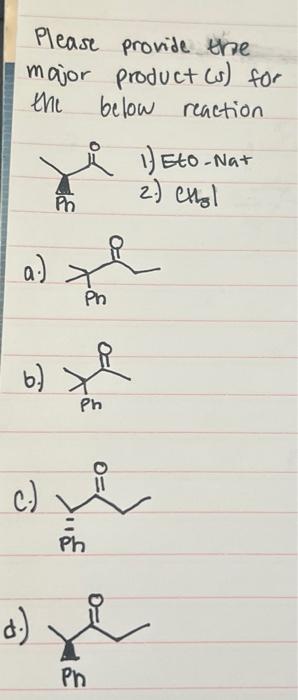 Please provide the
major product(s) for
the below reaction
O 1.) EtO-Na+
Ph 2.) CH3I
a.) O
Ph
b.) O
Ph
c.) O
Ph
d.) O
Ph